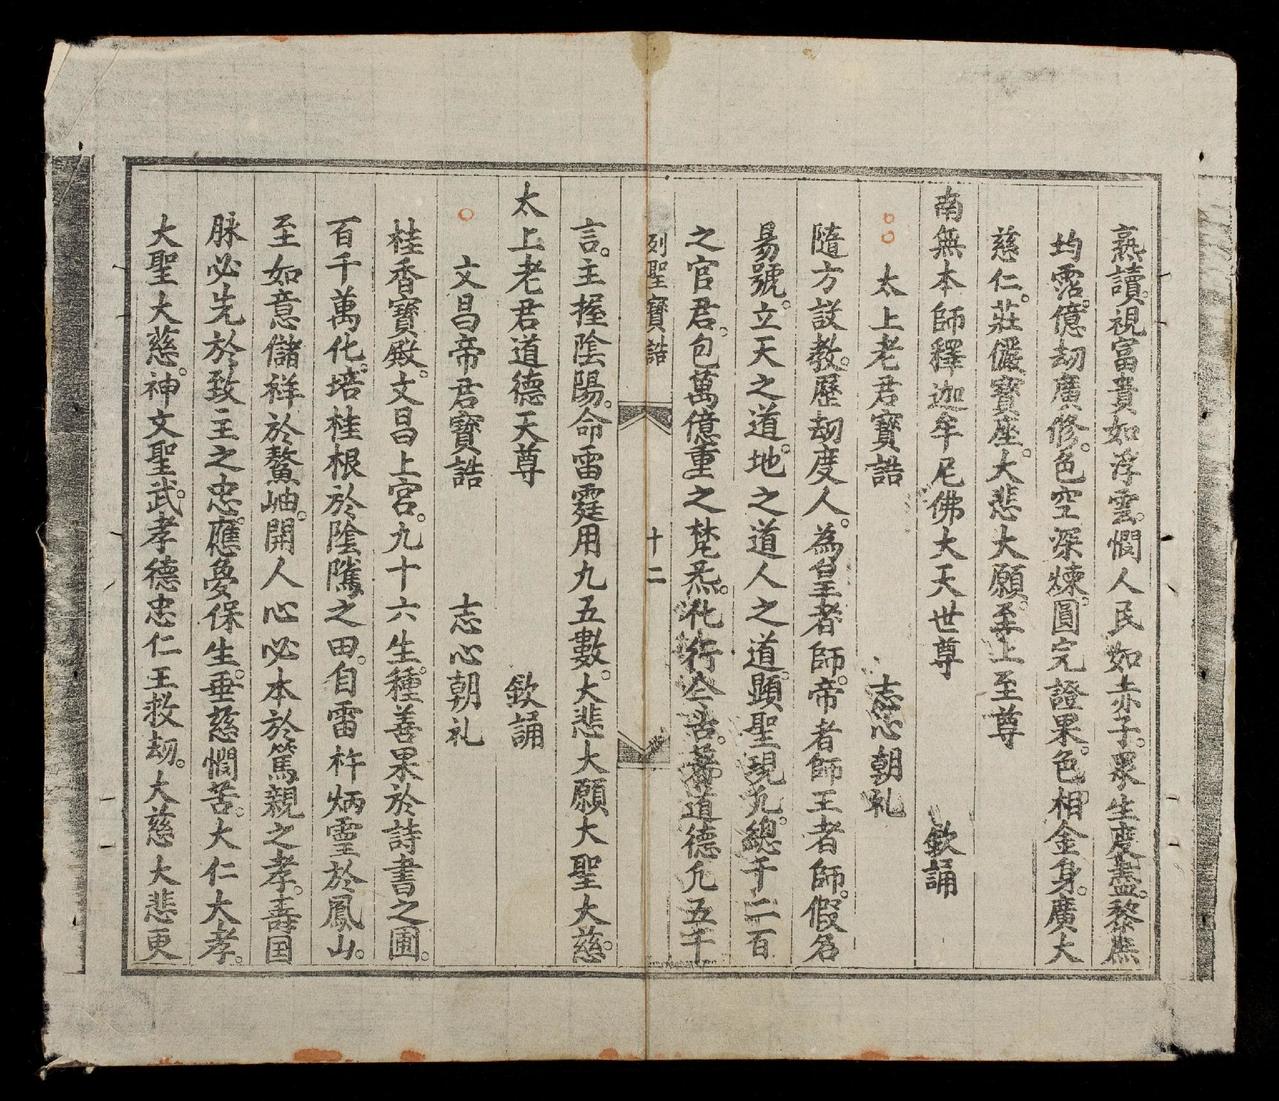 熟讀。視富貴如浮雲。憫人民如赤子。眾生度盡。黎庶
均霑。億劫廣修。色空深煉。圓完證果。色相金身。廣大
慈仁。莊儼寶座。大悲大願。至上至尊
南無本師釋迦牟尼佛大天世尊 欽誦
太上老君寶誥 志心朝礼
隨方設教。歷劫度人。為皇者師。帝者師王者師。假名
易號。立天之道。地之道人之道。顯聖現凡。總千二百
之官君。包萬億重之梵炁。化行今古。著道德凡五千
列聖寶誥 十二
言。主握陰陽。命雷霆用九五數。大悲大願大聖大慈。
太上老君道德天尊 欽誦
文昌帝君寶誥 志心朝礼
桂香寶殿。文昌上宮。九十六生。種善果於詩書之圃。
百千萬化。培桂根於陰隲之田。自雷杵炳靈於鳳山。
至如意儲祥於鰲岫。開人心必本於篤親之孝。壽国
脉必先於致主之忠。應夢保生。垂慈憫苦。大仁大孝。
大聖大慈。神文聖武。孝德忠仁王救劫。大慈大悲更